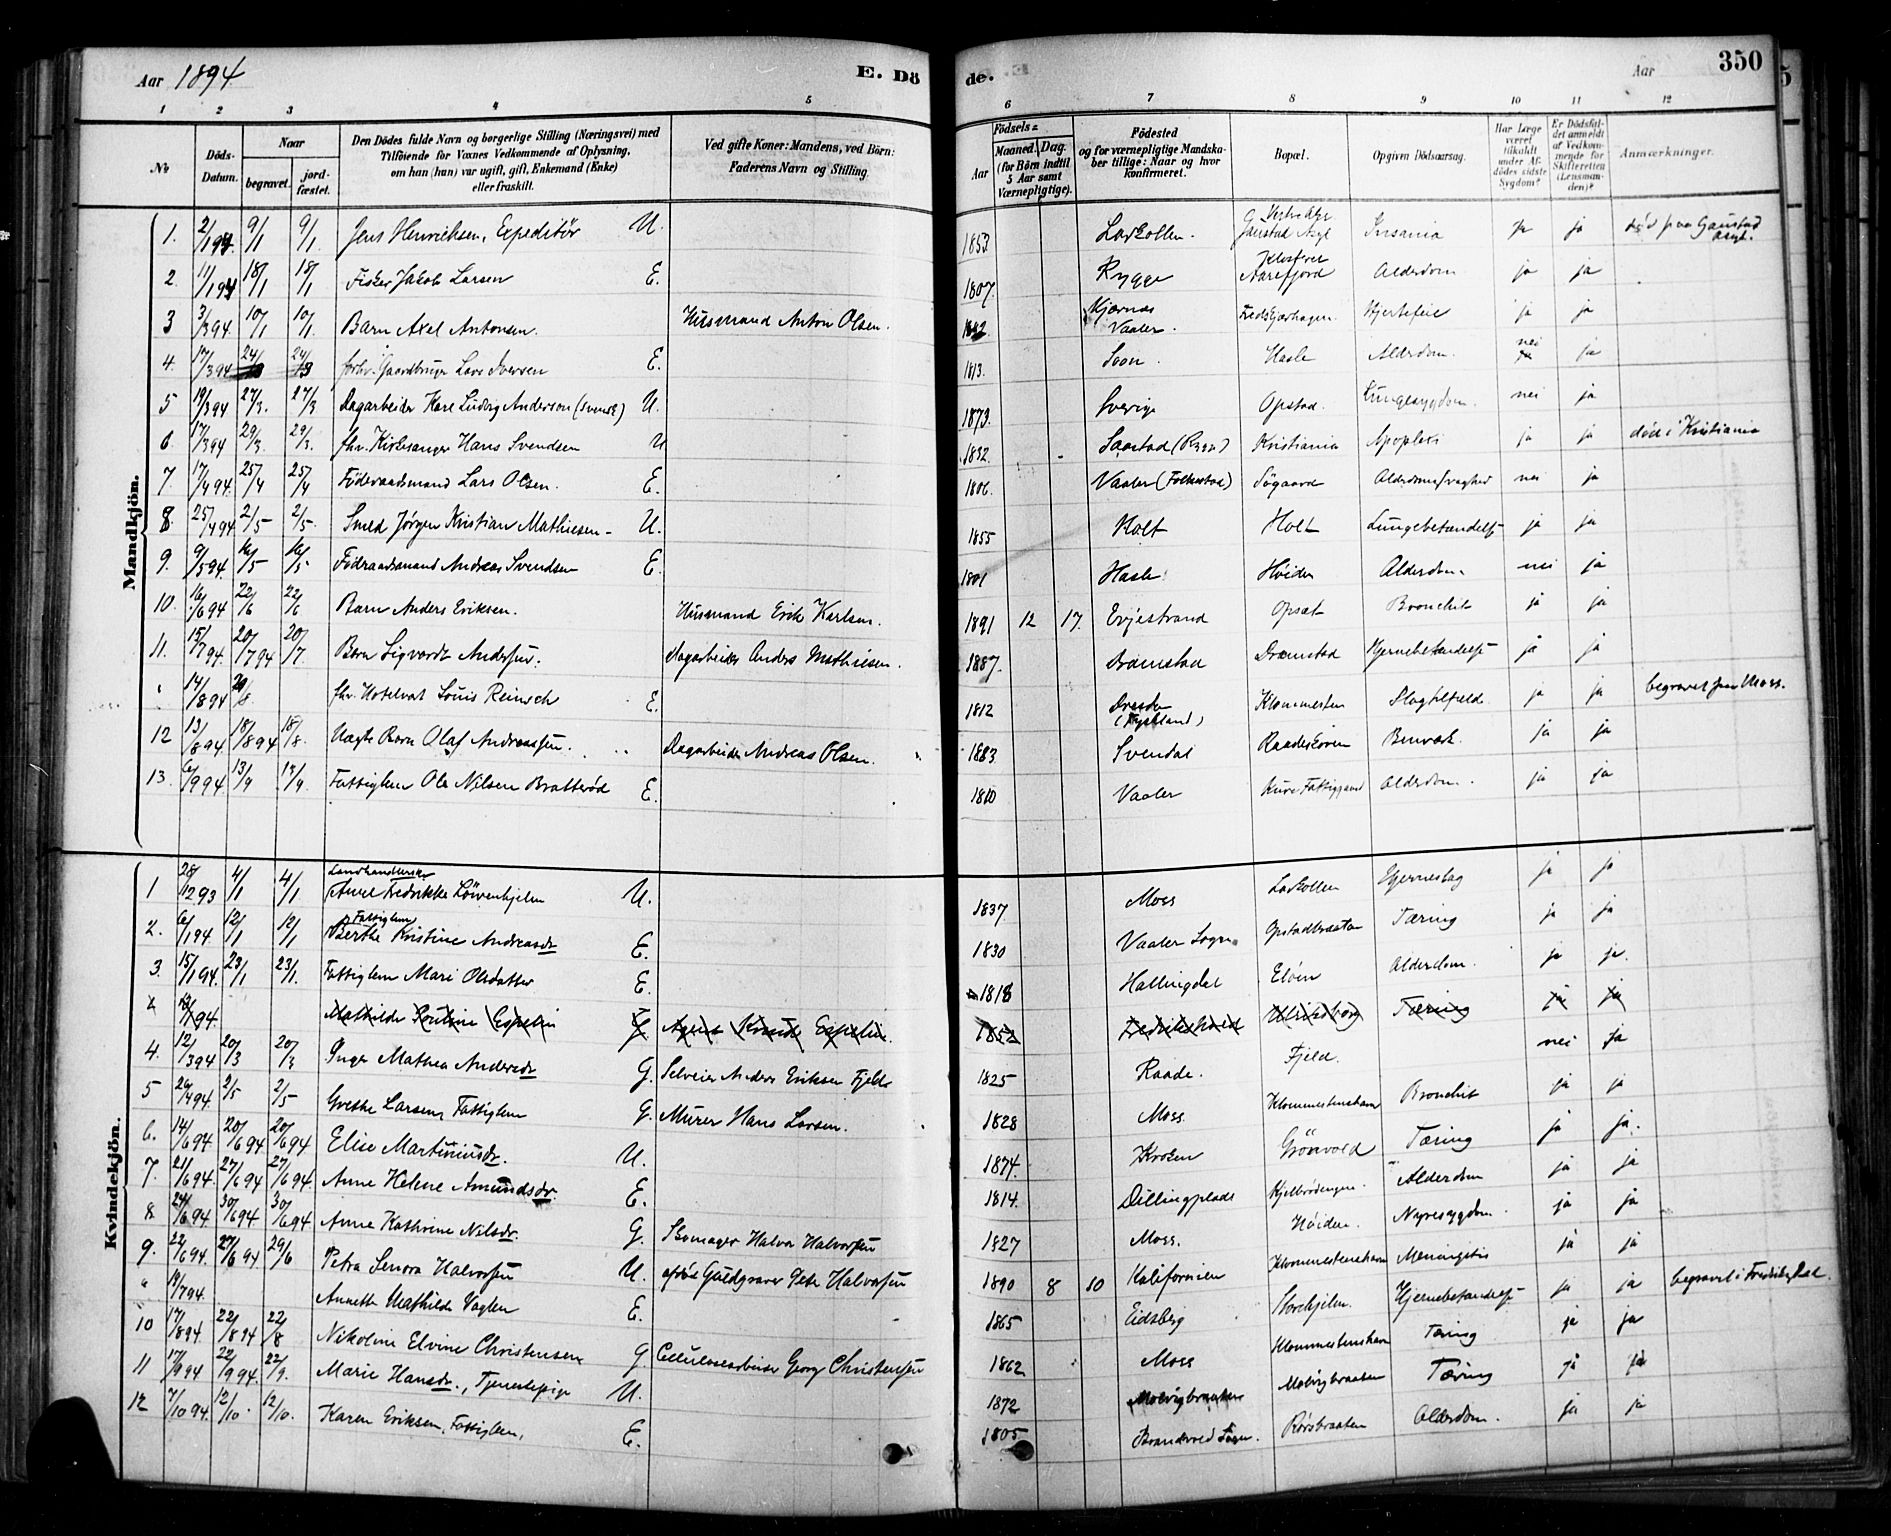 Aar 1894 E. Dö de. Aar 350
1 2 3 4 5 6 7 8 9 10 11 12
No. Döds-Datum. Naar begravet. jord-fæstet. Den Dödes fulde Navn og borgerlige Stilling (Næringsvei) med Tilföiende for Voxnes Vedkommende af Oplysning, om han (hun) var ugift, gift, Enkemand (Enke) eller fraskilt. Ved gifte Koner: Mandens, ved Börn: Faderens Navn og Stilling. Födsels= Aar Maaned. Dag. (for Börn indtil 5 Aar samt Værnepligtige). Födested og for værnepligtige Mandskaber tillige: Naar og hvor konfirmeret. Bopæl. Opgiven Dödsaarsag. Har Læge været tilkaldt under Afdödes sidste Sygdom? Er Dödsfaldet anmeldt af Vedkommende for Skifteretten (Lensmanden)? Anmærkninger.
Mandkjön.
1. 2/1 94. 9/1 9/1. Jens Henriksen, Expeditör U. 1853 Larkollen. Gaustad Asyl Insania ja ja död paa Gaustad Asyl.
2. 11/1 94 18/1 18/1 Fisker Jakob Larsen E. 1807. Rygge Klosteret Aarefjord Alderdom ja ja
3 3/3 94 10/1 10/1. Barn Axel Antonsen. Husmand Anton Olsen. Kjærnes Vaaler. Hjertefeil ja ja
4. 17/3 94 24/3 24/3 forhv. Gaardbruger Lars Iversen E. 1813. Soon. Hasle Alderdom. nei ja
5 19/3 94 27/3. 27/3 Dagarbeider Karl Ludvig Anderson (svensk) U. 1873. Sverige Opstad. Lungesygdom. nei ja
6. 17/3 94 29/3. 29/3. fhv. Kirkesanger Hans Svendsen U 1832. Saastad (Rygge) Kristiania Apoplexi ja ja död i Kristiania
7. 17/4 94. 25/4 25/4 Föderaadsmand Lars Olsen. E. 1806. Vaaler (Folkestad) Sögaard Alderdomssvaghed nei ja
8. 25/4 94 2/5 2/5. Smed Jörgen Kristian Mathiesen - U. 1855 Holt Holt Lungebetændelse ja ja
9. 9/5 94. 16/5 16/5 Föderaadsmand Andreas Svendsen E. 1801 Hasle Höiden Alderdom nei ja
10. 16/6 94 22/6 22/6 Barn Anders Eriksen. Husmand Erik Karlsen. 1891 12 17. Evjestrand Opsæt Bronchit ja ja
11. 15/7 94. 20/7 94 20/7 Barn Sigvardt Andersen. Dagarbeider Anders Mathiesen. 1887. Dramstad Dramstad Hjernebetændelse ja ja
" 14/8 94 20/8 fhv. Hotelvært Louis Reinsch E. 1812 Dresden (Tyskland) Klommesten Slagtilfælde ja ja begravet paa Moss.
12 13/8 94. 18/8 94 18/8. Uægte Barn Olaf Andreassen. Dagarbeider Andreas Olsen. 1883 Svendal Raadeskoven Benværk. ja ja
13. 6/9 94. 13/9 13/9. Fattiglem Ole Nilsen Bratteröd E. 1810 Vaaler Kure Fattiggaard Alderdom. ja ja
Kvindekjön.
1 28/12 93 4/1 4/1 Landhandlerske Anne Fredrikke Lövenhjelm U. 1837 Moss Larkollen Hjerneslag ja ja
2. 6/1 94. 12/1 12/1 Fattiglem Berthe Kristine Andreasdr E. 1830 Vaaler Sogn Opstadbraaten Tæring ja ja
3. 15/1 94. 23/1 23/1. Fattiglem Mari Olsdatter E. 1818 Hallingdal Elöen Alderdom. ja ja.
4 94. Mathilde Pouline Espelin E. Agent Knud Espelin. 1852 Fredrikshald Tæring ja ja
4. 12/3 94 20/3 20/3 Inger Mathea Andersdr G. Selveier Anders Eriksen Fjeld 1825 Raade. Fjeld. nei ja
5 24/4 94. 2/5 2/5 Grethe Larsen, Fattiglem G. Murer Hans Larsen. 1828 Moss Klommestenshavn Bronchit ja ja
6. 14/6 94 20/6 94 20/6 94 Elise Martiniusdr. U. 1874. Kroken Grönvold Tæring ja ja.
7. 21/6 94. 27/6 94 27/6 94. Anne Helene Amundsdr. E. 1814. Dillingplads Kjellerödengen Alderdom ja ja
8. 24/6 94 30/6 94 30/6 94 Anne Kathrine Nilsdr. G. Skomager Halvor Halvorsen 1827 Moss. Höiden. Nyresygdom. ja ja
9. 22/6 94. 27/6 94 29/6 Petra Senora Halvorsen U. afdöd Guldgraver Peter Halvorsen 1890 8 10 Kalifornien Klommestenshavn Meningitis ja ja
" 19/7 94. Annette Mathilde Vaglen E. 1865 Eidsberg Storehjelm. Hjernebetændelse ja ja begravet i Fredrikstad.
10 17/8 94. 22/8 94 22/8 Nikoline Elvine Christensen G Cellulosearbeider Georg Christensen 1862 Moss Klommestenshavn Tæring ja ja
11 17/9 94 22/9 94. 22/9. Marie Hansdr., Tjenestepige U. 1872 Molvigbraaten Molvigbraaten Tæring ja ja
12 7/10 94. 12/10. 12/10. Karen Eriksen, Fattiglem, E. 1805 Brandvold Sogn. Rörsbraaten Alderdom. ja ja